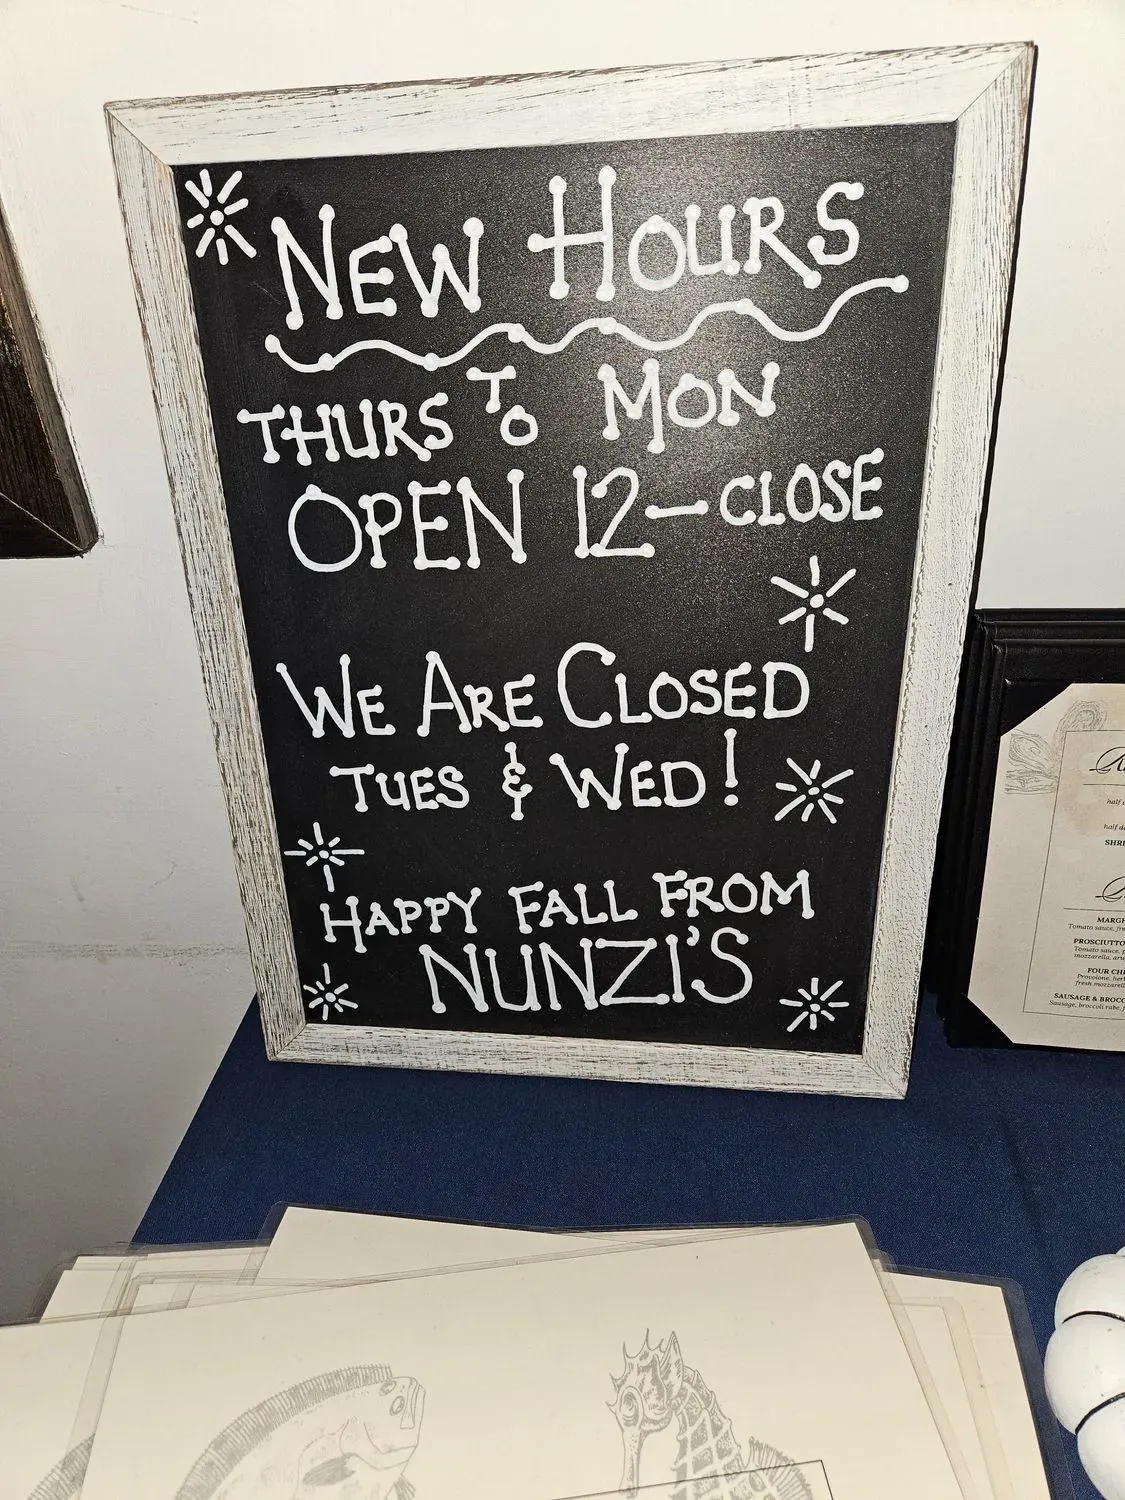 NEW HOURS
THURS TO MON
OPEN 12-CLOSE
WE ARE CLOSED
TUES & WED!
HAPPY FALL FROM
NUNZI'S
half
half d
SHRI
MARGH
Tomato sauce, fre
PROSCIUTTO
Tomato sauce, p
mozzarella, aru
FOUR CHE
Provolone, herb
fresh mozzarel
SAUSAGE & BROCC
Sausage, broccoli rabe, f